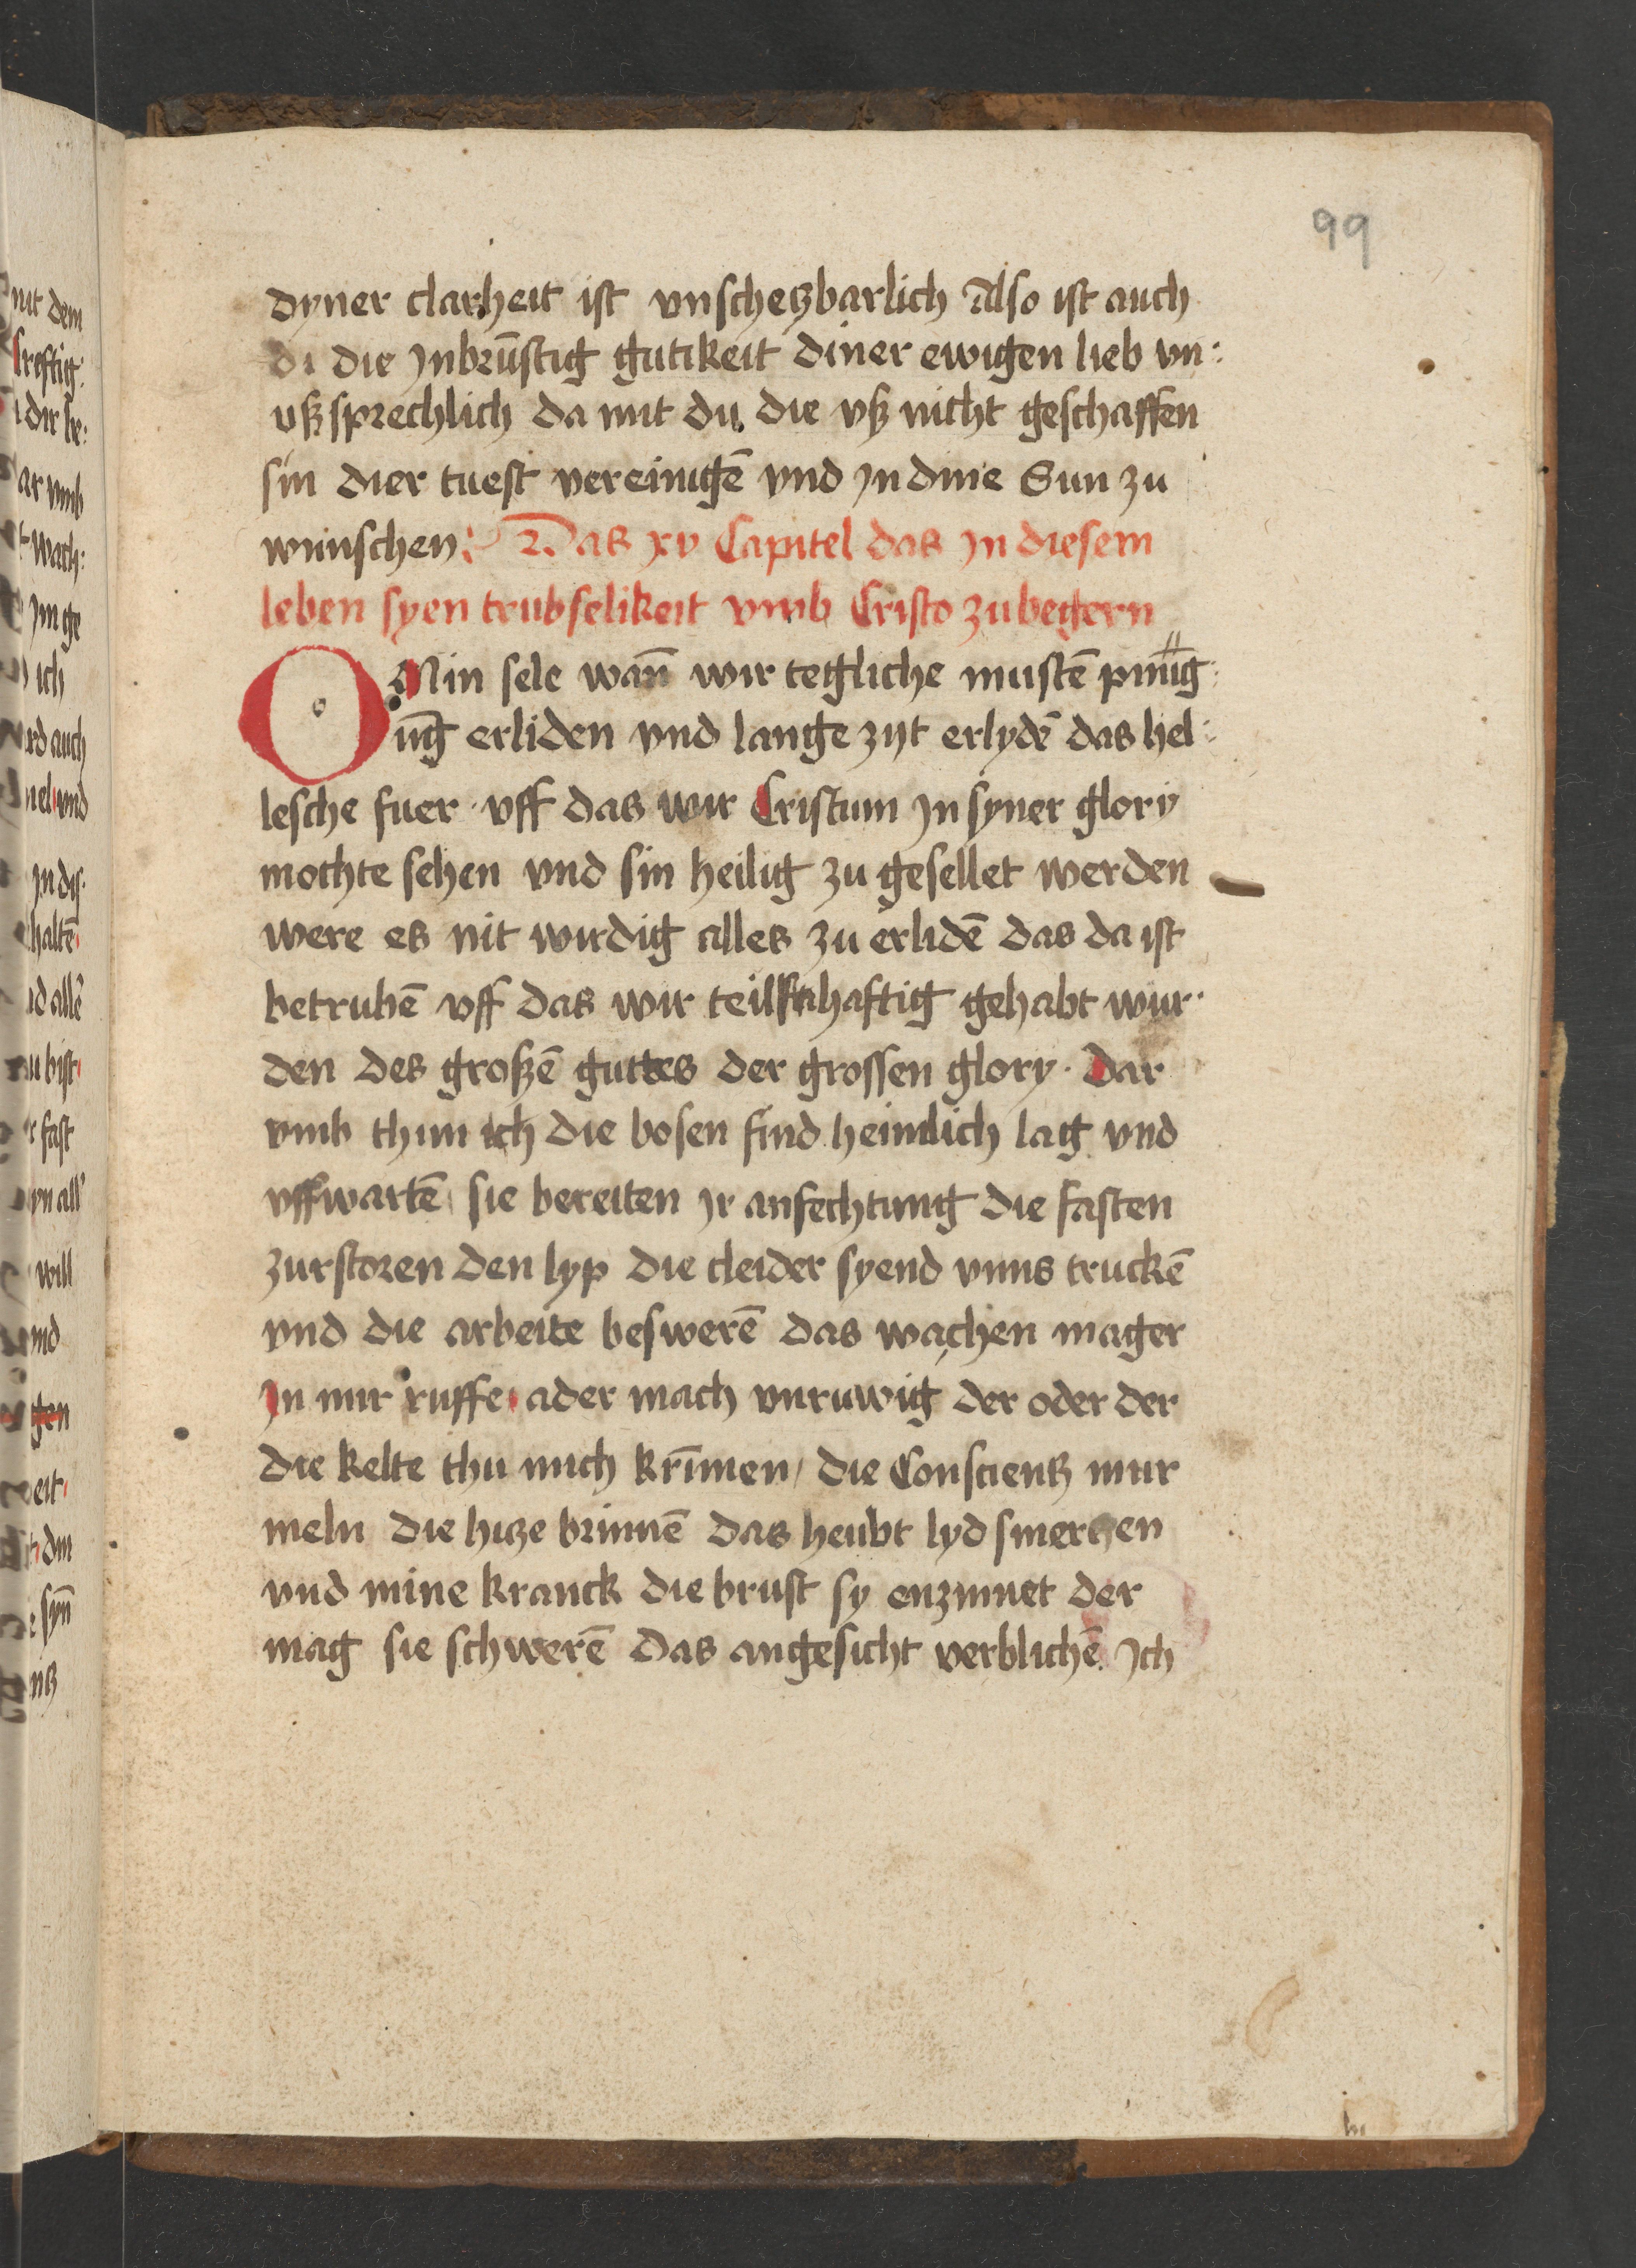 99
dyner clarheit ist vnschetzbarlich Also ist auch
di die Jnbrūstig gutikeit diner ewigen lieb vn:
vßsprechlich da mit du die vß nicht geschaffen
sin dier tuest vereinigē vnd Jn dine Sun zu
wunschen: Das xv Capitel das Jn diesem
leben syen trubselikeit vmb Cristo zu begern
O Min sele wan̄ wir tegliche mustē pinig:
ūg erliden vnd lange zyt erlydē das hel:
lesche fuer · vff das wir Cristum Jn syner glory
mochte sehen vnd sin heilig zu gesellet werden
were es nit wirdig alles zu erlidē das da ist
betrubē vff das wir teilhaftig gehabt wur·
den des großē guttes der grossen glory · Dar
vmb thun ich die bosen find heimlich lag vnd
vffwartē sie bereiten Jr anfechtung die fasten
zurstoren den lyp die cleider syend vnns truckē
vnd die arbeite beswerē das wachen mager
Jn mir ruffe ader mach vnruwig der oder der
die kelte thu mich krīmen / die Conscientz mur
meln die hitze brinnē das heubt lyd smerczen
vnd mine kranck die brust sy enzinnet der
mag sie schwerē das angesicht verblichē Jch